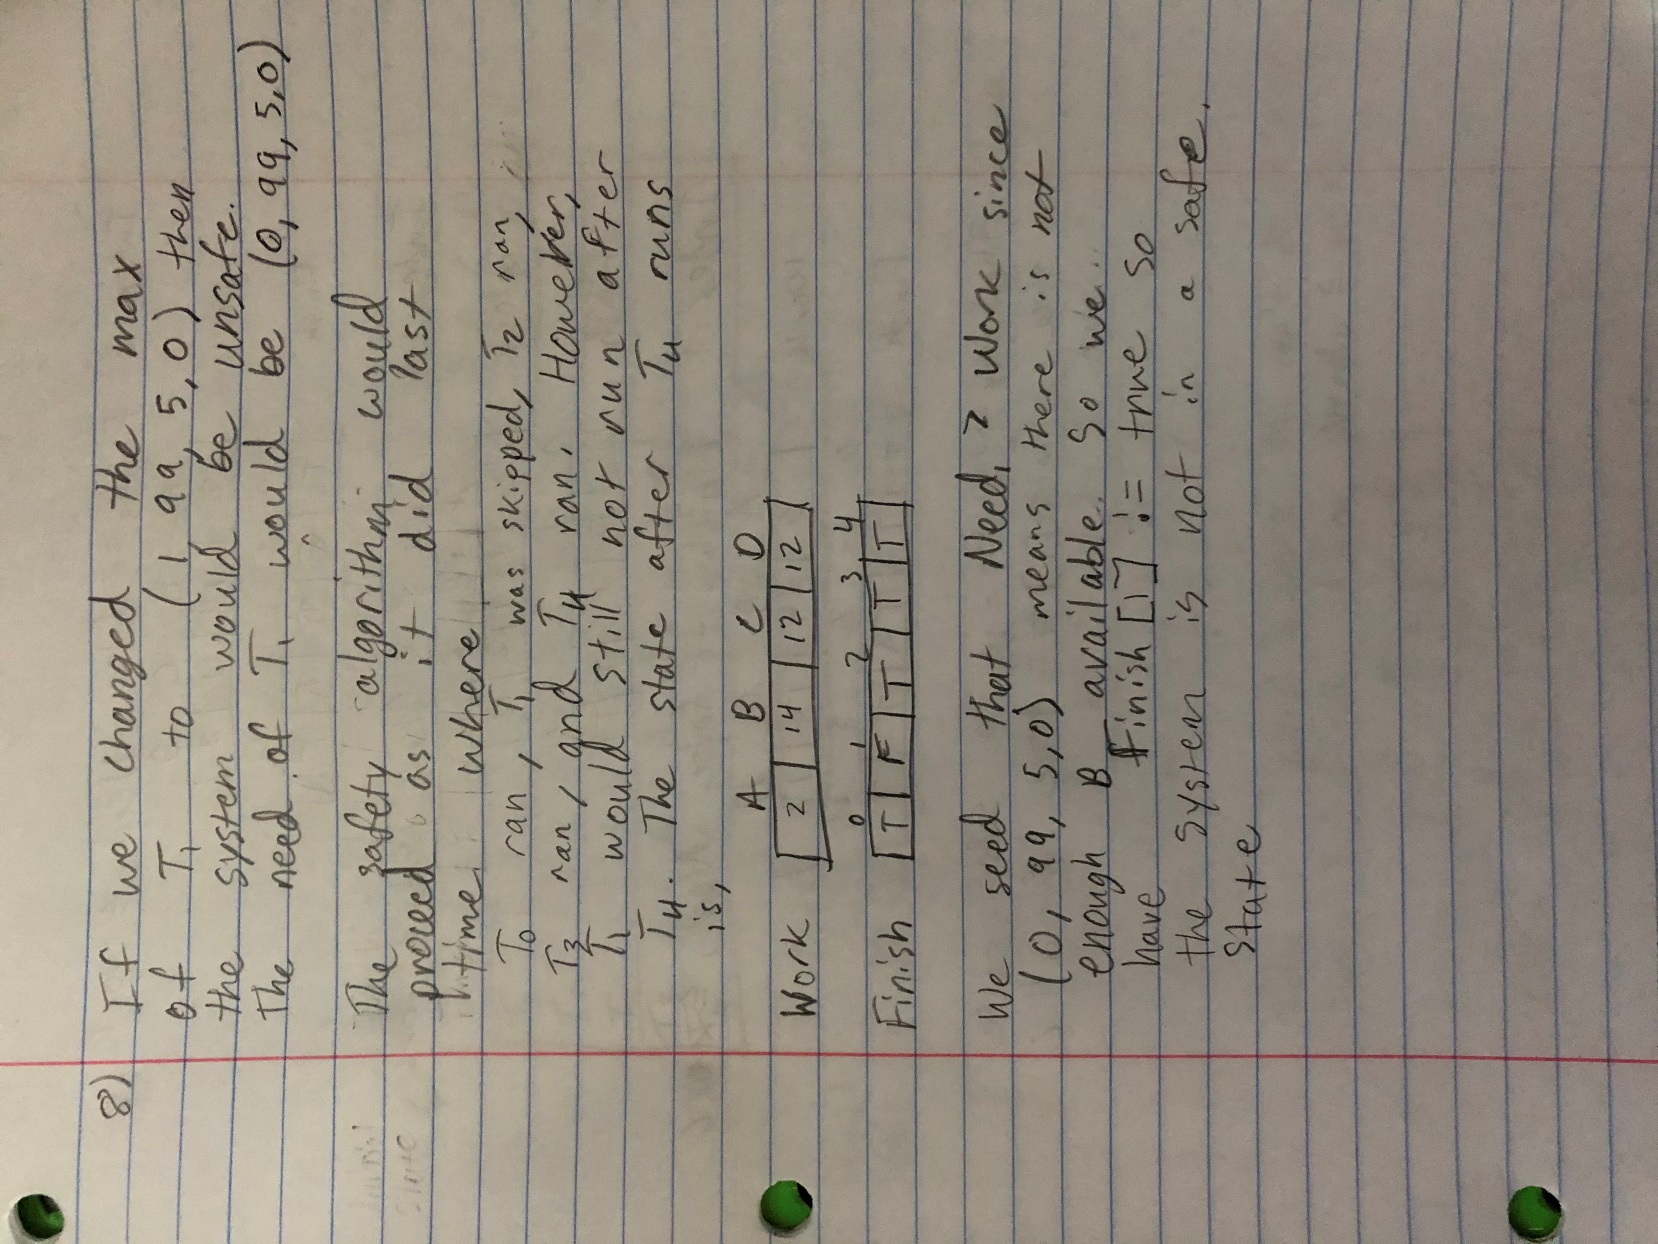 8) If we changed the max
of T1 to (1 99, 5, 0) then
the system would be unsafe.
The need of T1 would be (0, 99, 5, 0)
The safety algorithm would
proceed as it did last
time where
T0 ran, T1 was skipped, T2 ran,
T3 ran, and T4 ran. However,
T1 would still not run after
T4. The state after T4 runs
is,
A B C D
Work 2 14 12 12
0 1 2 3 4
Finish T F T T T
We seed that Need1 > Work since
(0, 99, 5, 0) means there is not
enough B available. So we
have finish[1] != true so
the system is not in a safe
state